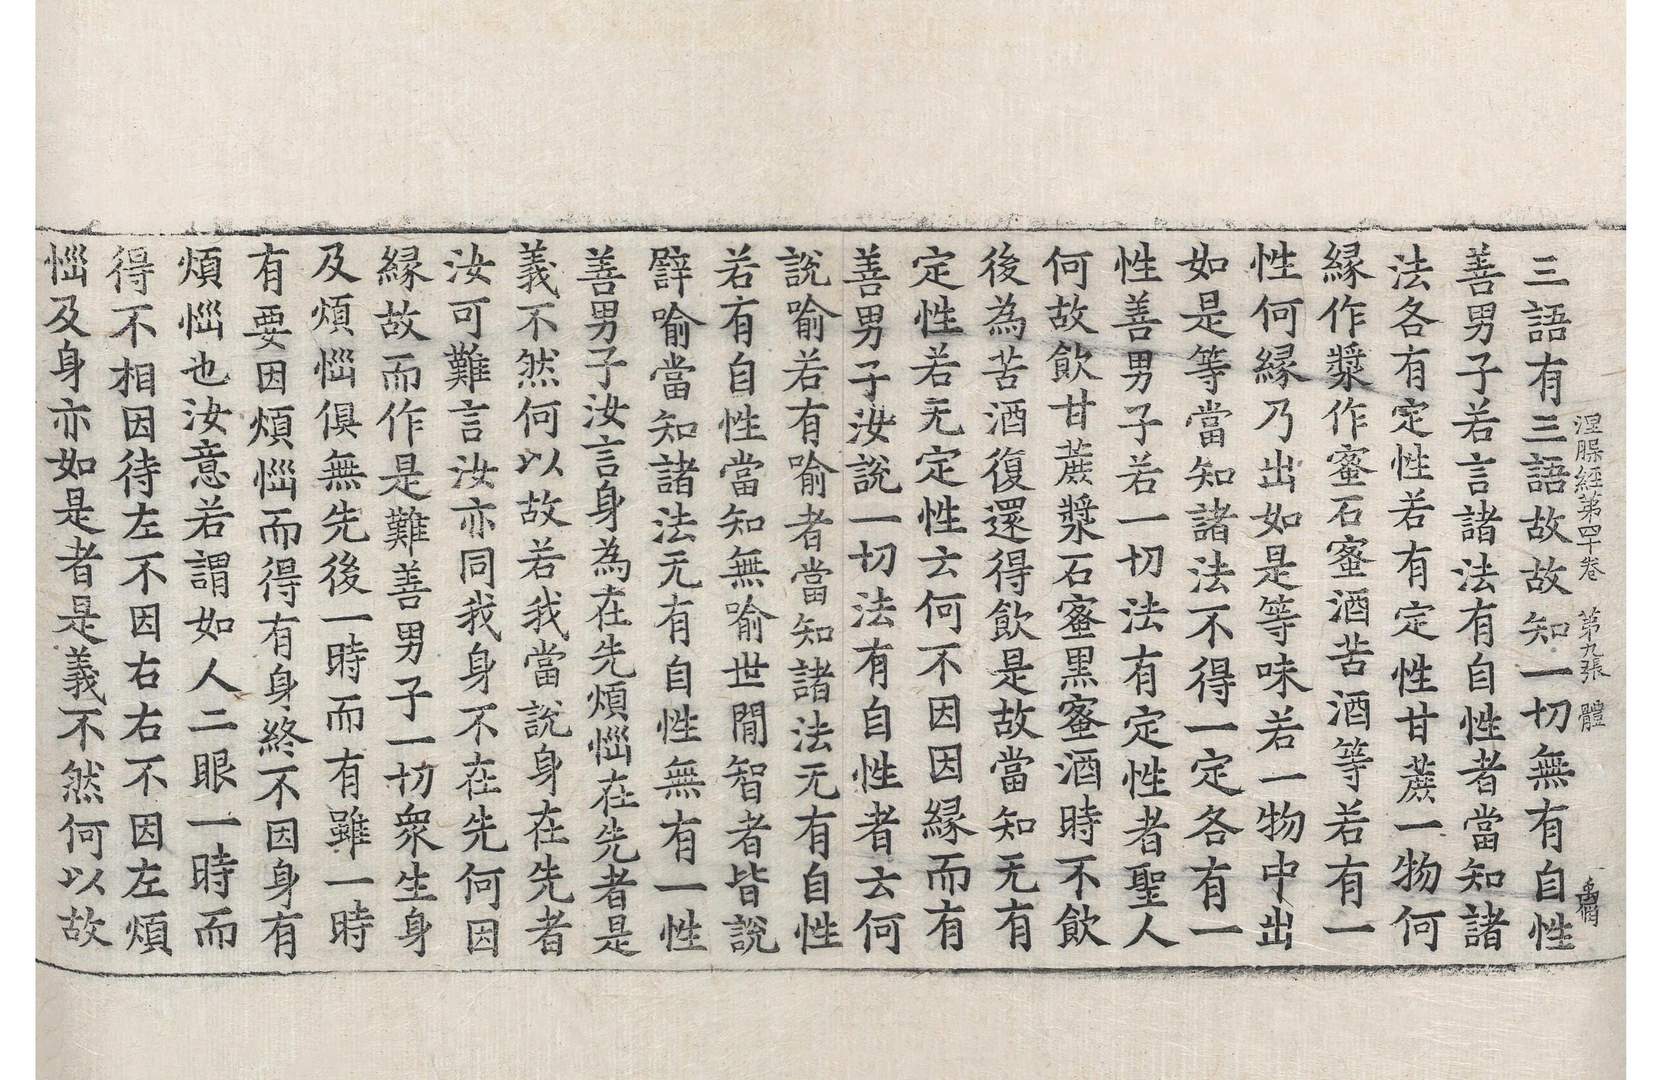 涅槃經第四十卷　第九張　體
三語有三語故故知一切無有自性
善男子若言諸法有自性者當知諸
法各有定性若有定性甘蔗一物何
縁作漿作蜜石蜜酒苦酒等若有一
性何縁乃出如是等味若一物中出
如是等當知諸法不得一定各有一
性善男子若一切法有定性者聖人
何故飲甘蔗漿石蜜黒蜜酒時不飲
後為苦酒復還得飲是故當知无有
定性若无定性云何不因因縁而有
善男子汝說一切法有自性者云何
說喻若有喻者當知諸法无有自性
若有自性當知無喻世間智者皆說
譬喻當知諸法无有自性無有一性
善男子汝言身為在先煩惱在先者是
義不然何以故若我當說身在先者
汝可難言汝亦同我身不在先何因
縁故而作是難善男子一切衆生身
及煩惱俱無先後一時而有雖一時
有要因煩惱而得有身終不因身有
煩惱也汝意若謂如人二眼一時而
得不相因待左不因右右不因左煩
惱及身亦如是者是義不然何以故